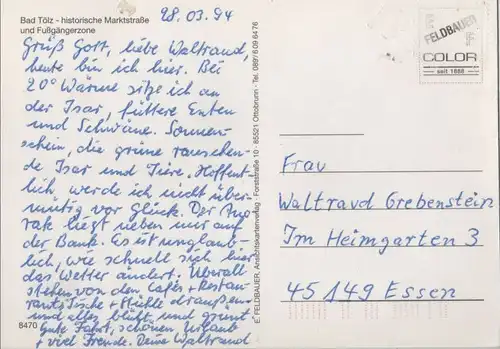 28.03.94
Bad Tölz - historische Marktstraße
und Fußgängerzone
Grüß Gott, liebe Waltraud,
heute bin ich hier. Bei
20° Wärme sitze ich an
der Isar, füttere Enten
und Schwäne. Sonnen-
schein, die grüne rauschen-
de Isar und Tiere. Hoffent-
lich werde ich nicht über-
mütig vor Glück. Der Ano-
rak liegt neben mir auf
der Bank. Es ist unglaub-
lich, wie schnell sich hier
das Wetter ändert. Überall
stehen vor den Cafés + Restau-
rants Tische + Stühle draußen
und alles blüht und grünt
gute Fahrt, schönen Urlaub
+ viel Freude. Deine Waltraud
8470
E. FELDBAUER, Ansichtskartenverlag · Forststraße 10 · 85521 Ottobrunn · Tel. 089/6 09 64 76
FELDBAUER
COLOR
seit 1888
Frau
Waltraud Grebenstein
Im Heimgarten 3
45149 Essen